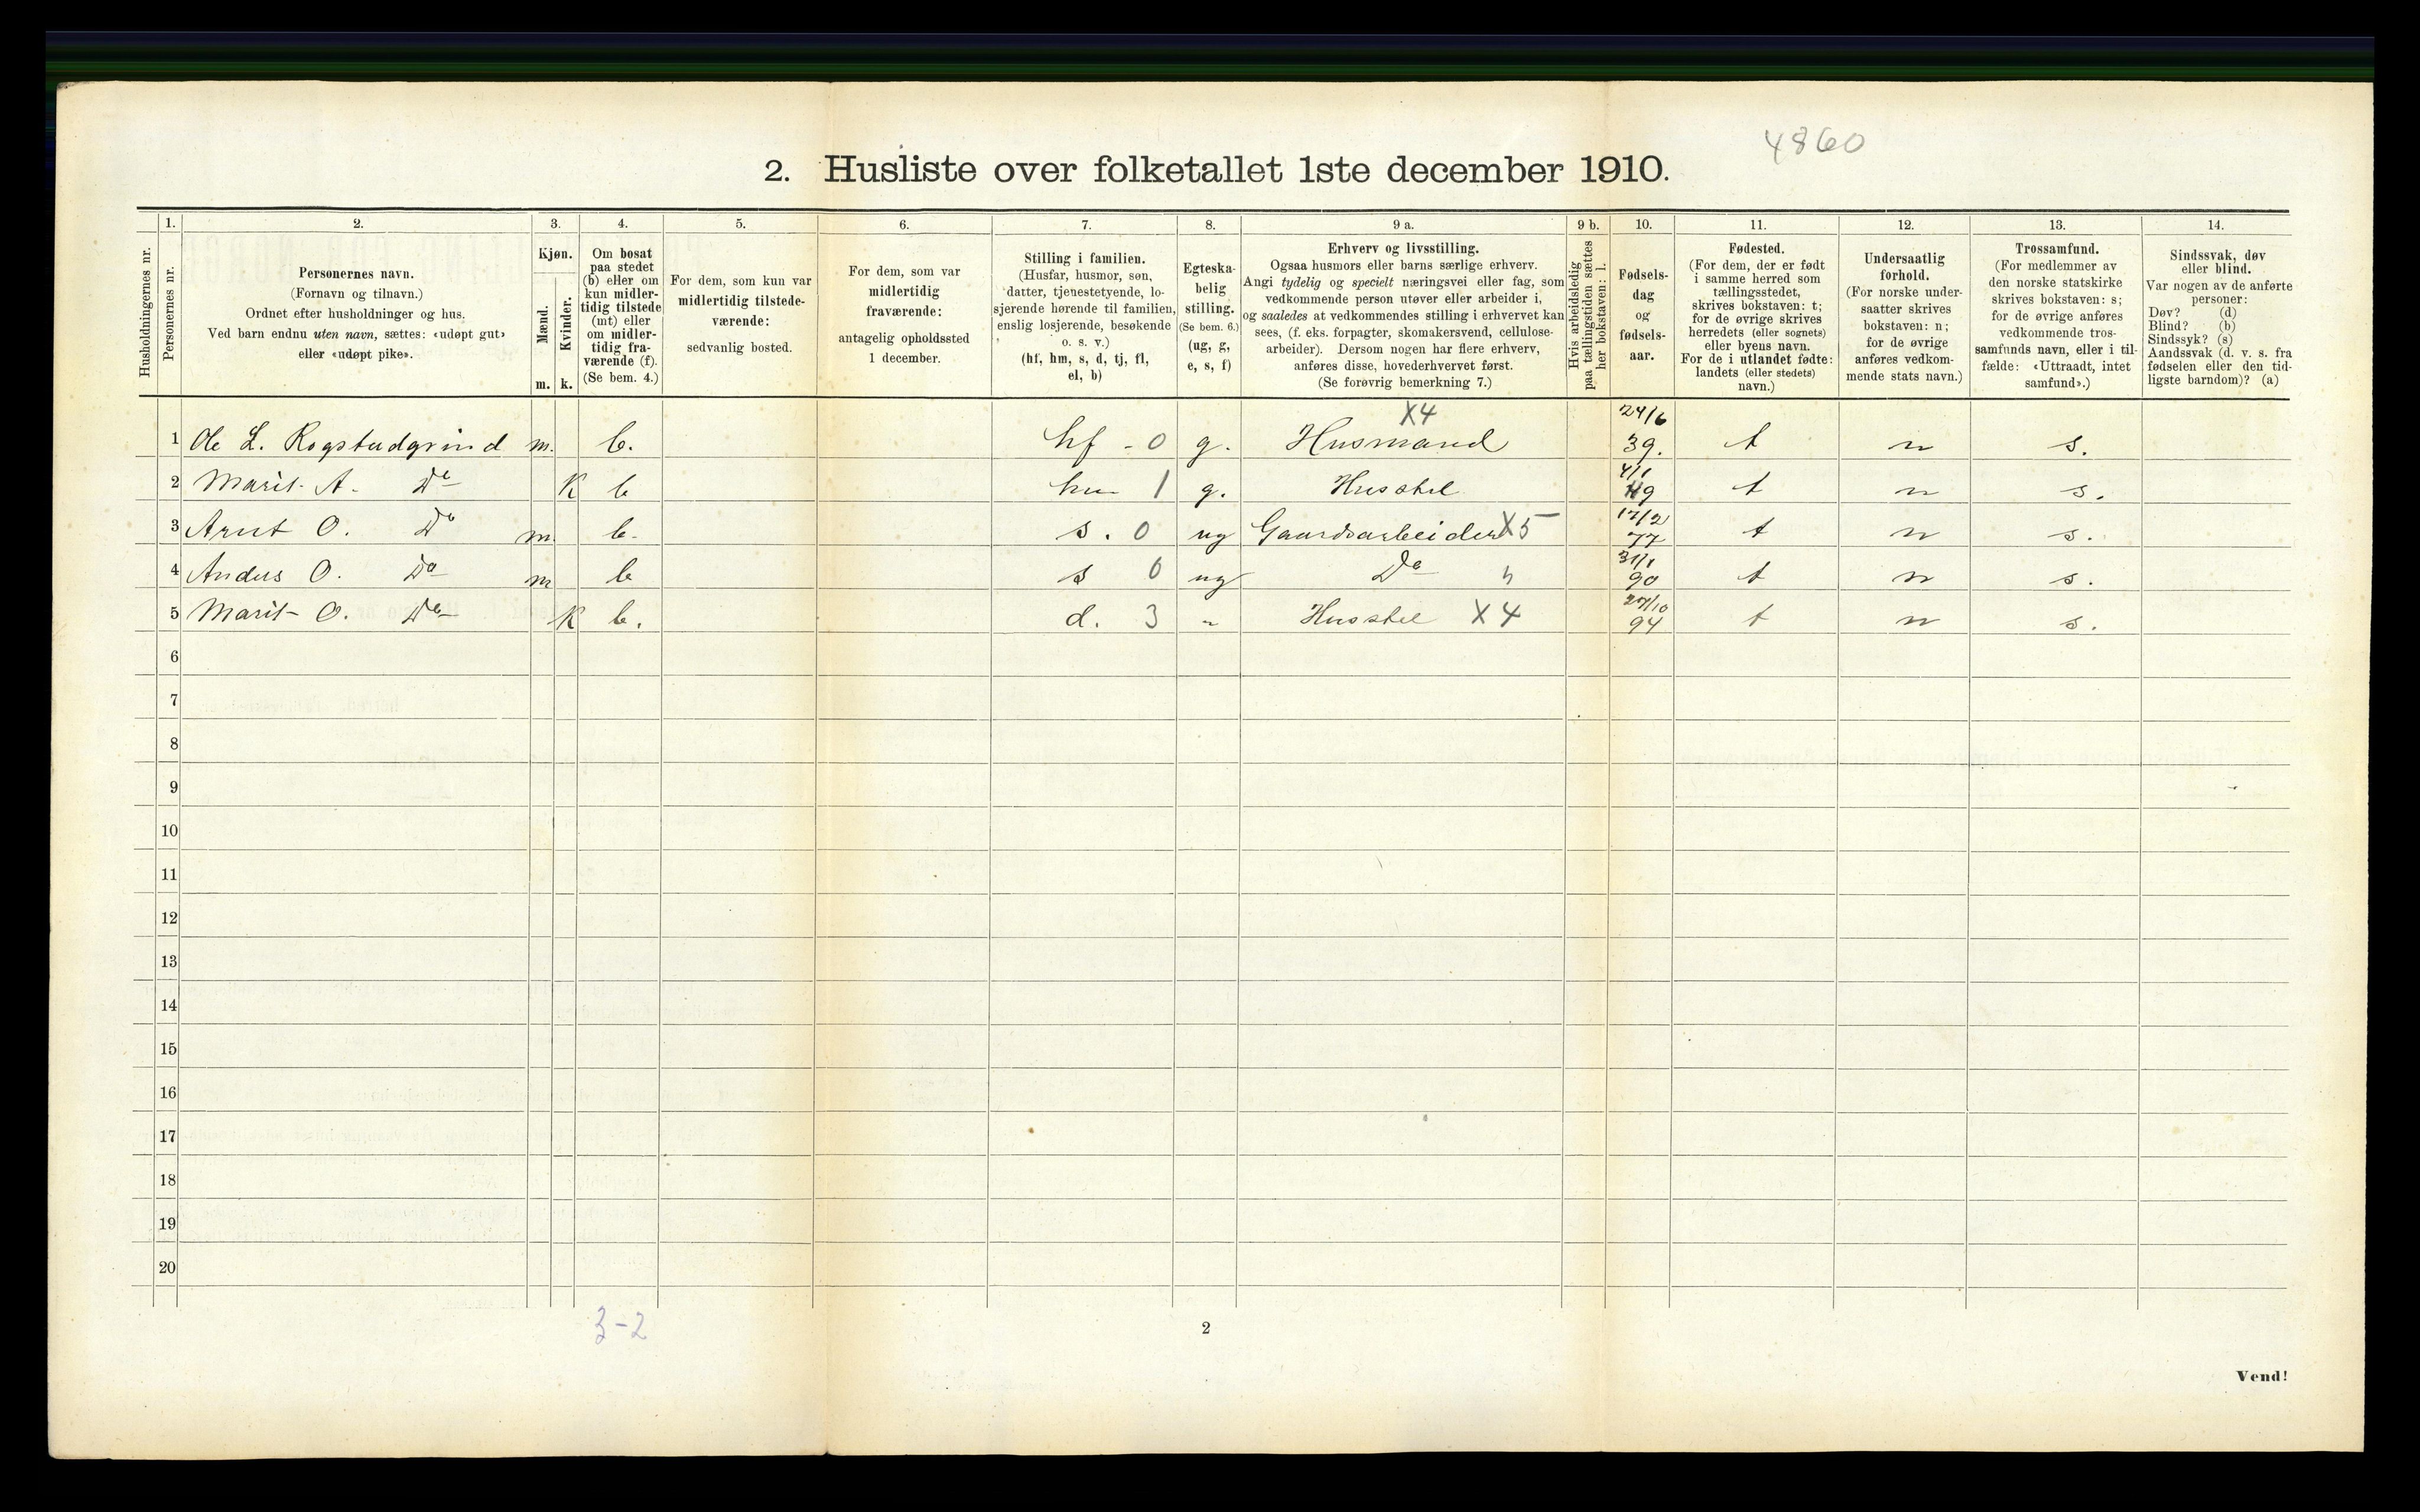 4860
2. Husliste over folketallet 1ste december 1910.
Husholdningernes nr.
1.
Personernes nr.
2.
Personernes navn.
(Fornavn og tilnavn.)
Ordnet efter husholdninger og hus.
Ved barn endnu uten navn, sættes: «udøpt gut»
eller «udøpt pike».
3.
Kjøn.
Mænd.
m.
Kvinder.
k.
4.
Om bosat
paa stedet
(b) eller om
kun midler-
tidig tilstede
(mt) eller
om midler-
tidig fra-
værende (f).
(Se bem. 4.)
5.
For dem, som kun var
midlertidig tilstede-
værende:
sedvanlig bosted.
6.
For dem, som var
midlertidig
fraværende:
antagelig opholdssted
1 december.
7.
Stilling i familien.
(Husfar, husmor, søn,
datter, tjenestetyende, lo-
sjerende hørende til familien,
enslig losjerende, besøkende
o. s. v.)
(hf, hm, s, d, tj, fl,
el, b)
8.
Egteska-
belig
stilling.
(Se bem. 6.)
(ug, g,
e, s, f)
9 a.
Erhverv og livsstilling.
Ogsaa husmors eller barns særlige erhverv.
Angi tydelig og specielt næringsvei eller fag, som
vedkommende person utøver eller arbeider i,
og saaledes at vedkommendes stilling i erhvervet kan
sees, (f. eks. forpagter, skomakersvend, cellulose-
arbeider). Dersom nogen har flere erhverv,
anføres disse, hovederhvervet først.
(Se forøvrig bemerkning 7.)
9 b.
Hvis arbeidsledig
paa tællingstiden sættes
her bokstaven: l.
10.
Fødsels-
dag
og
fødsels-
aar.
11.
Fødested.
(For dem, der er født
i samme herred som
tællingsstedet,
skrives bokstaven: t;
for de øvrige skrives
herredets (eller sognets)
eller byens navn.
For de i utlandet fødte:
landets (eller stedets)
navn.)
12.
Undersaatlig
forhold.
(For norske under-
saatter skrives
bokstaven: n;
for de øvrige
anføres vedkom-
mende stats navn.)
13.
Trossamfund.
(For medlemmer av
den norske statskirke
skrives bokstaven: s;
for de øvrige anføres
vedkommende tros-
samfunds navn, eller i til-
fælde: «Uttraadt, intet
samfund».)
14.
Sindssvak, døv
eller blind.
Var nogen av de anførte
personer:
Døv? (d)
Blind? (b)
Sindssyk? (s)
Aandssvak (d. v. s. fra
fødselen eller den tid-
ligste barndom)? (a)
1 Ole L. Rogstadgrind m. b. hf - 0 g. Husmand X4 24/6 39. t n s.
2 Marit A. Do K b hm 1 g. Husstel 4/1 49 t n s.
3 Arnt O. Do m. b. s. 0 ug Gaardsarbeider X5 17/2 77 t n s.
4 Anders O. Do m b s 0 ug Do 31/1 90 t n s.
5 Marit O. Do K b. d. 3 " Husstel X4 27/10 94 t n s.
6
7
8
9
10
11
12
13
14
15
16
17
18
19
20
3-2
2
Vend!